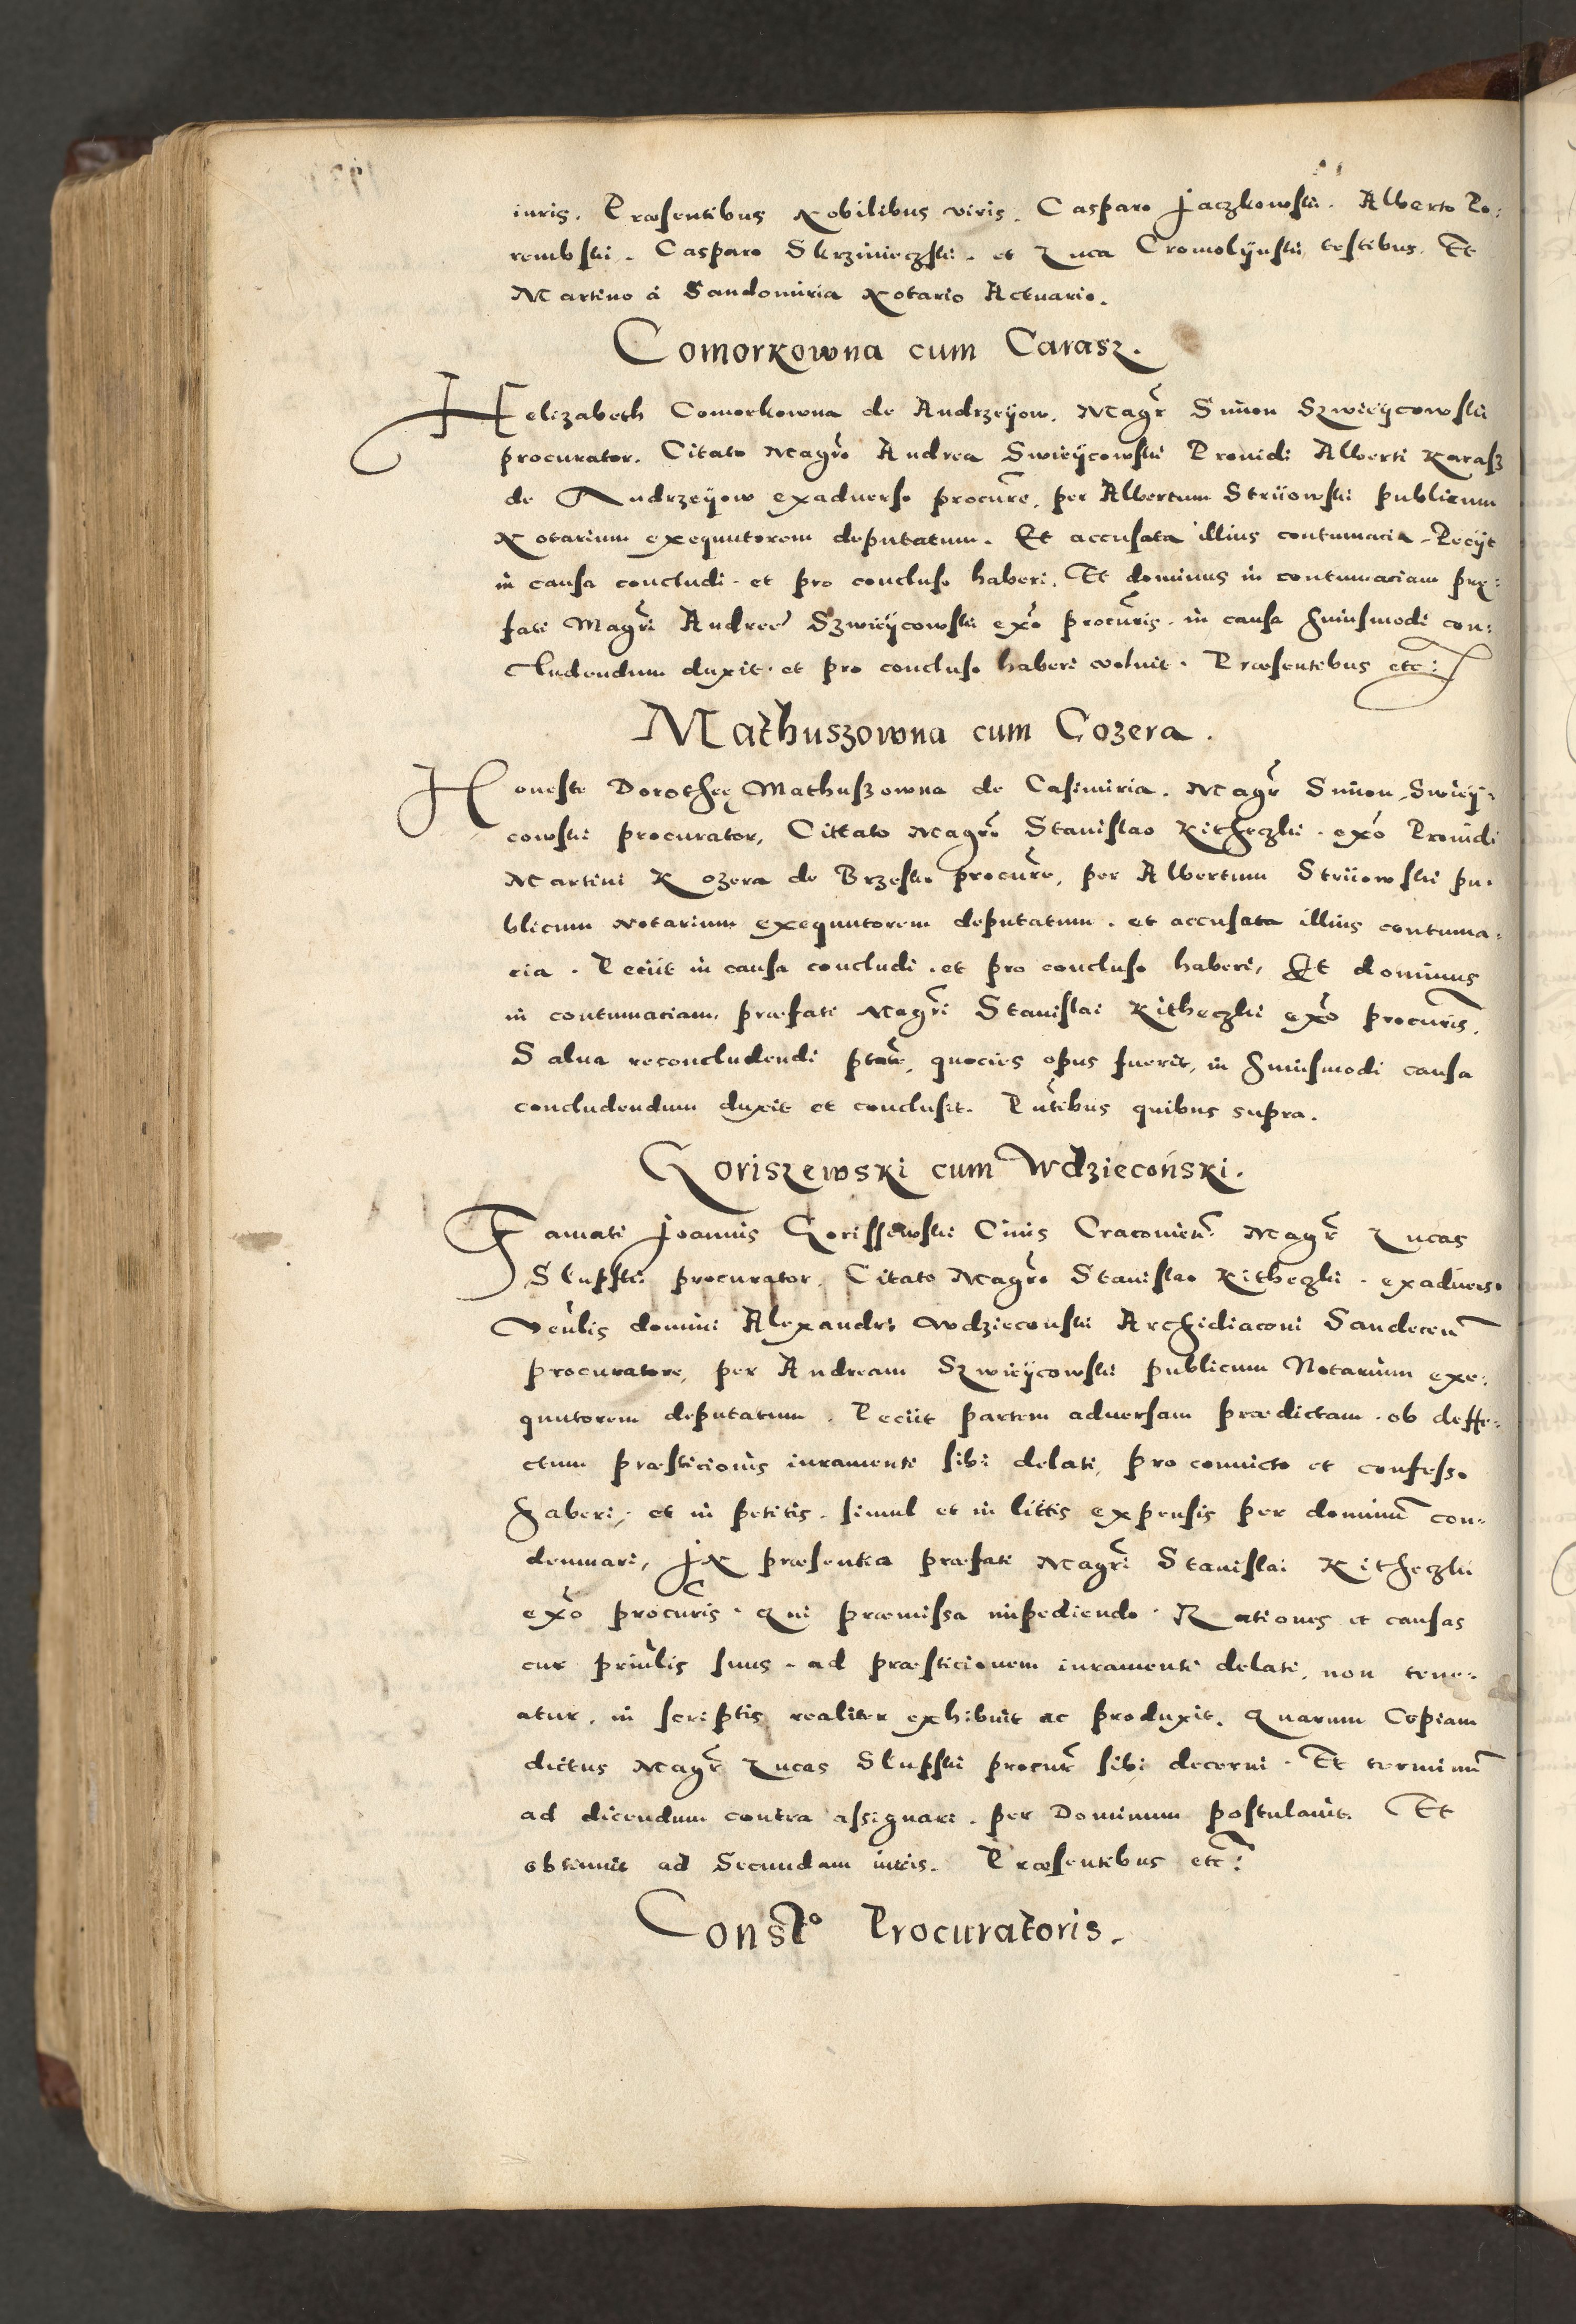 iuris. Præsentibus Nobilibus viris. Casparo Jaczkowski. Alberto Po:
rembski. Casparo Skrzinieczki. et Luca Cromolyński testibus. Et
Martino á Sandomiria Notario Actuario.
Comorkowna cum Carasz.
Helizabeth Comorkowna de Andrzeÿow. Magr̃ Simon Szwieÿcowski
procurator. Citato Magr̃o Andrea Swieÿcowski Prouidi Alberti Karasz
de Andrzeÿow exaduerso procur̃e, per Albertum Striiowski publicum
Notarium exequutorem deputatum. Et accusata illius contumacia. Peciit
in causa concludi. et pro concluso haberi. Et dominus in contumaciam præ:
fati Magr̃i Andreę Szwieÿcowski exo͂ procur̃is. in causa huiusmodi con:
cludendum duxit. et pro concluso haberi voluit. Præsentibus etc:
Mathuszowna cum Cozera.
Honeste Dorotheę Mathuszowna de Casimiria. Magr̃ Simon Swieÿ:
cowski procurator, Cittato Magr̃o Stanislao Kitheczki. exo͂ Prouidi
Martini Kozera de Brzesko procur̃e, per Albertum Striiowski pu:
blicum notarium exequutorem deputatum. et accusata illius contuma:
cia. Peciit in causa concludi. et pro concluso haberi, Et dominus
in contumaciam præfati Magr̃i Stanislai Kitheczki exo͂ procur̃is.
Salua reconcludendi pt̃ate, quocies opus fuerit, in huiusmodi causa
concludendum duxit et conclusit. Pñtibus quibus supra.
Goriszewski cum Wdziecoński.
Famati Joannis Gorissewski Ciuis Cracouieñ. Magr̃ Lucas
Slupski procurator. Citato Magr̃o Stanislao Kitheczki. exaduerso
Veñlis domini Alexandri Wdzieconski Archidiaconi Sandeceñ
procuratore, per Andream Szwieÿcowski publicum Notarium exe:
quutorem deputatum. Peciit partem aduersam prædictam. ob deffe:
ctum præsticionis iuramenti sibi delati, pro conuicto et confesso
haberi, et in petitis. simul et in littis expensis per dominũ con:
demnari, IN præsentia præfati Magr̃i Stanislai Kitheczki
exo͂ procur̃is. Qui præmissa impediendo. Rationes et causas
cur prin̄lis suus. ad præsticionem iuramenti delati, non tene:
atur, in scriptis realiter exhibuit ac produxit. Quarum Copiam
dictus Magr̃ Lucas Slupski procur̃ sibi decerni. Et terminũ
ad dicendum contra assignari. per Dominum postulauit. Et
obtinuit ad Secundam iuris. Præsentibus etc:
Constᵒ Procuratoris.